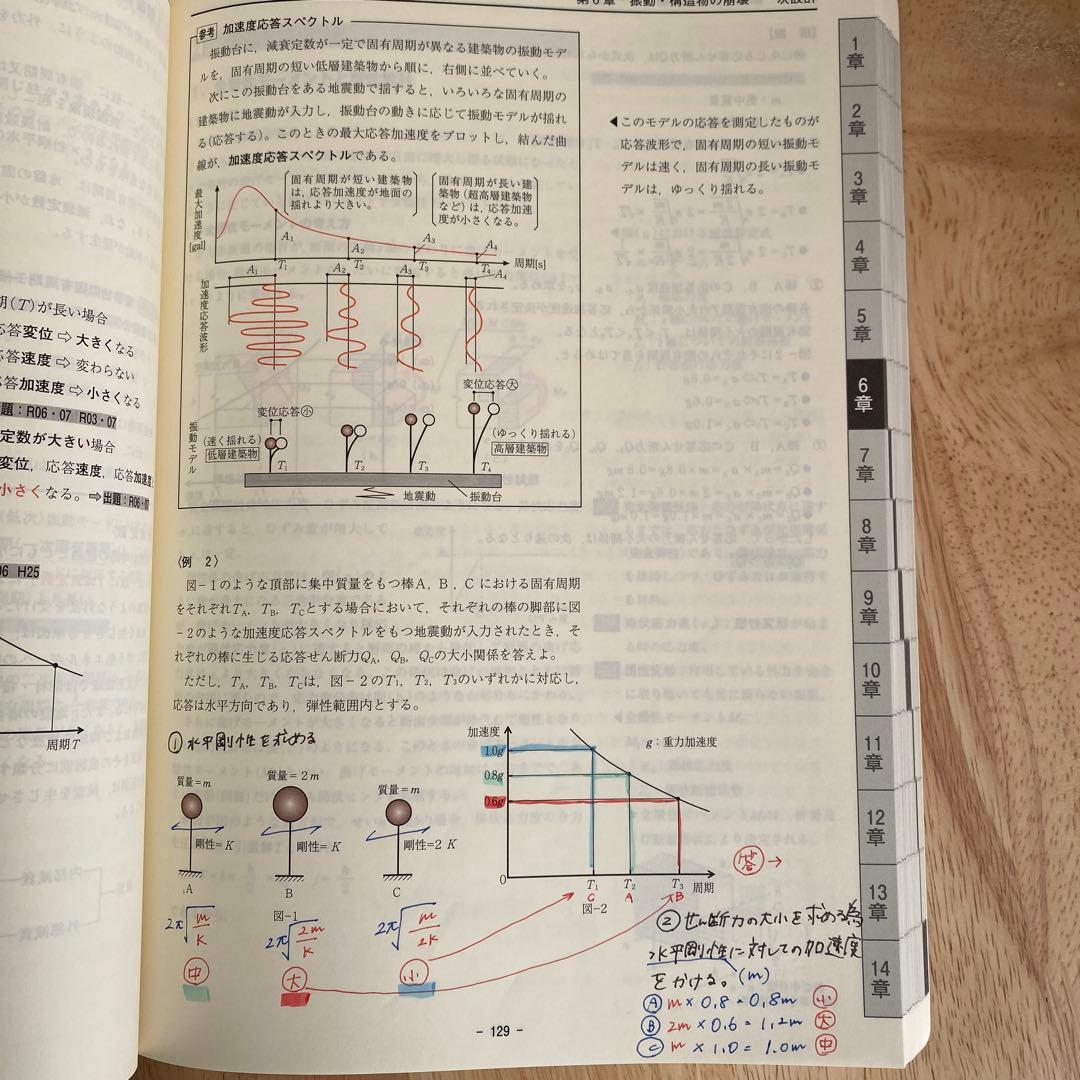 第6章 振動・構造物の崩壊
参考 加速度応答スペクトル
振動台に，減衰定数が一定で固有周期が異なる建築物の振動モデ
ルを，固有周期の短い低層建築物から順に，右側に並べていく。
次にこの振動台をある地震動で揺すると，いろいろな固有周期の
建築物に地震動が入力し，振動台の動きに応じて振動モデルが揺れ
る(応答する)。このときの最大応答加速度をプロットし，結んだ曲
線が，加速度応答スペクトルである。
◀このモデルの応答を測定したものが
応答波形で，固有周期の短い振動モ
デルは速く，固有周期の長い振動モ
デルは，ゆっくり揺れる。
最大加速度[gal]
固有周期が短い建築物
は，応答加速度が地面の
揺れより大きい。
固有周期が長い建
築物(超高層建築物
など)は，応答加速
度が小さくなる。
A1 A2 A3 A4
T1 T2 T3 T4 周期[s]
加速度応答波形
A1 A2 A3 A4
振動モデル
変位応答㊤小
変位応答大
(速く揺れる)
低層建築物
(ゆっくり揺れる)
高層建築物
T1 T2 T3 T4
地震動 振動台
期(T)が長い場合
応答変位 ⇨ 大きくなる
応答速度 ⇨ 変わらない
応答加速度 ⇨ 小さくなる
題：R06・07 R03・07
定数が大きい場合
変位，応答速度，応答加速度
小さくなる。⇨出題：R06・07
06 H25
周期T
〈例 2〉
図-1のような頂部に集中質量をもつ棒A，B，Cにおける固有周期
をそれぞれTA，TB，TCとする場合において，それぞれの棒の脚部に図
-2のような加速度応答スペクトルをもつ地震動が入力されたとき，そ
れぞれの棒に生じる応答せん断力QA，QB，QCの大小関係を答えよ。
ただし，TA，TB，TCは，図-2のT1，T2，T3のいずれかに対応し，
応答は水平方向であり，弾性範囲内とする。
① 水平剛性を求める
質量=m
質量=2m
質量=m
剛性=K
剛性=K
剛性=2K
A B C
図-1
2π√m/K
2π√2m/K
2π√m/2K
中
大
小
加速度
g：重力加速度
1.0g
0.8g
0.6g
0 T1 T2 T3 周期
C A B
図-2
答→
② せん断力の大小を求める為
水平剛性に対しての加速度
をかける。(m)
Ⓐ m×0.8=0.8m 小
Ⓑ 2m×0.6=1.2m 大
Ⓒ m×1.0=1.0m 中
- 129 -
1章
2章
3章
4章
5章
6章
7章
8章
9章
10章
11章
12章
13章
14章